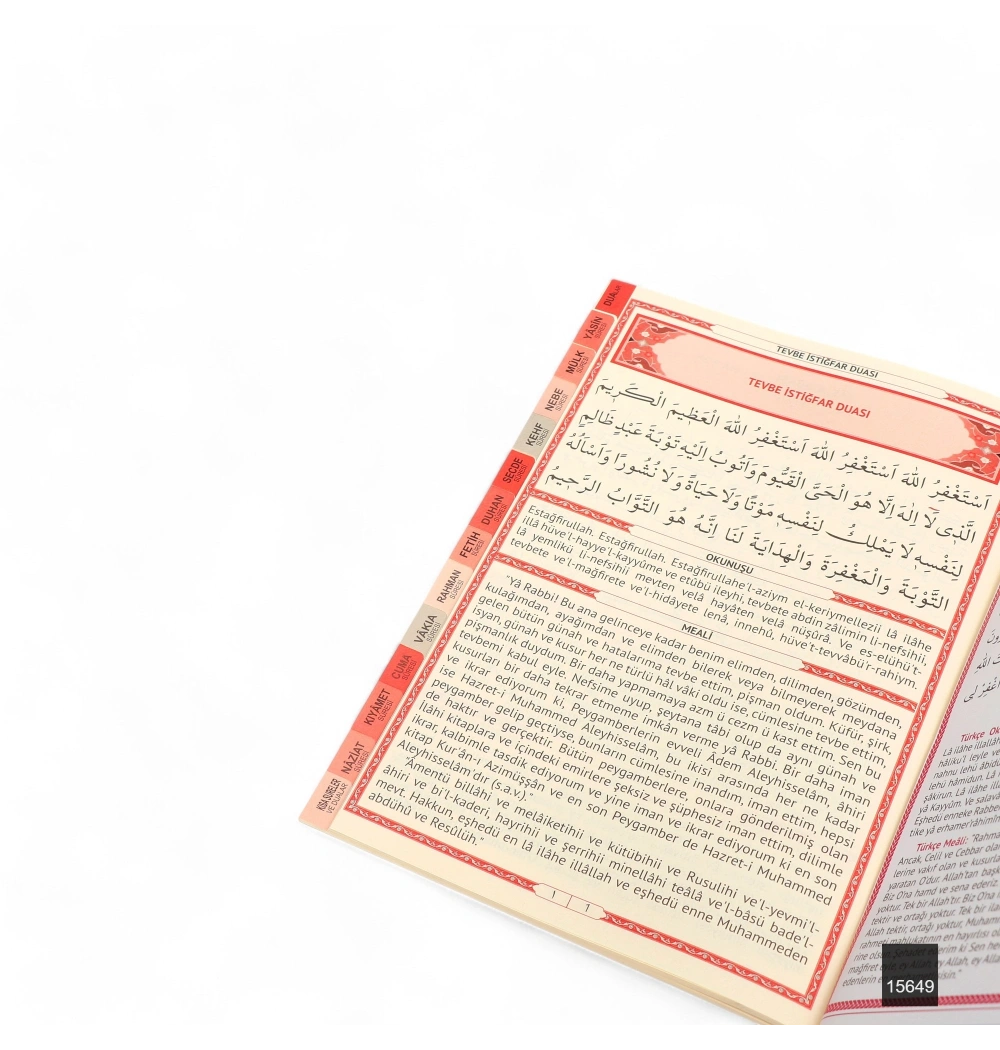 DUALAR
YÂSİN SÛRESİ
MÜLK SÛRESİ
NEBE SÛRESİ
KEHF SÛRESİ
SECDE SÛRESİ
DUHAN SÛRESİ
FETİH SÛRESİ
RAHMAN SÛRESİ
VÂKIA SÛRESİ
CUMA SÛRESİ
KIYÂMET SÛRESİ
NÂZİAT SÛRESİ
KISA SURELER VE DUALAR
TEVBE İSTİĞFAR DUASI
TEVBE İSTİĞFAR DUASI
اَسْتَغْفِرُ اللهَ اَسْتَغْفِرُ اللهَ اَسْتَغْفِرُ اللهَ الْعَظ۪يمَ الْكَر۪يمَ
الَّذ۪ى لَٓا اِلٰهَ اِلَّا هُوَ الْحَىَّ الْقَيُّومَ وَاَتُوبُ اِلَيْهِ تَوْبَةَ عَبْدٍ ظَالِمٍ
لِنَفْسِه۪ لَا يَمْلِكُ لِنَفْسِه۪ مَوْتًا وَلَا حَيَاةً وَلَا نُشُورًا وَاَسْاَلُهُ
التَّوْبَةَ وَالْمَغْفِرَةَ وَالْهِدَايَةَ لَنَا اِنَّهُ هُوَ التَّوَّابُ الرَّح۪يمُ
OKUNUŞU
Estağfirullah. Estağfirullah. Estağfirullahe'l-aziym el-keriymellezii lâ ilâhe
illâ hüve'l-hayye'l-kayyûme ve etûbü ileyhi, tevbete abdin zâlimin li-nefsihii,
lâ yemlikü li-nefsihii mevten velâ hayâten velâ nüşûrâ. Ve es-elühü't-
tevbete ve'l-mağfirete ve'l-hidâyete lenâ, innehû, hüve't-tevvâbü'r-rahiym.
MEALİ
"Yâ Rabbi! Bu ana gelinceye kadar benim elimden, dilimden, gözümden,
kulağımdan, ayağımdan ve elimden bilerek veya bilmeyerek meydana
gelen bütün günah ve hatalarıma tevbe ettim, pişman oldum. Küfür, şirk,
isyan, günah ve kusur her ne türlü hâl vâki oldu ise, cümlesine tevbe ettim,
pişmanlık duydum. Bir daha yapmamaya azm ü cezm ü kast ettim. Sen bu
tevbemi kabul eyle. Nefsime uyup, şeytana tâbi olup da aynı günah ve
kusurları bir daha tekrar etmeme imkân verme yâ Rabbi. Bir daha iman
ve ikrar ediyorum ki, Peygamberlerin evveli Âdem Aleyhisselâm, âhiri
ise Hazret-i Muhammed Aleyhisselâm, bu ikisi arasında her ne kadar
peygamber gelip geçtiyse, bunların cümlesine inandım, iman ettim, hepsi
de haktır ve gerçektir. Bütün peygamberlere, onlara gönderilmiş olan
İlâhi kitaplara ve içindeki emirlere şeksiz ve şüphesiz iman ettim, dilimle
ikrar, kalbimle tasdik ediyorum ve yine iman ve ikrar ediyorum ki en son
kitap Kur'ân-ı Azimüşşân ve en son Peygamber de Hazret-i Muhammed
Aleyhisselâm'dır (s.a.v.)."
"Âmentü billâhi ve melâiketihii ve kütübihii ve Rusulihi ve'l-yevmi'l-
âhiri ve bi'l-kaderi, hayrihii ve şerrihii minellâhi teâlâ ve'l-bâsü bade'l-
mevt. Hakkun, eşhedü en lâ ilâhe illâllah ve eşhedü enne Muhammeden
abdühû ve Resûlüh."
Lâ ilâhe illallâh
hâliku'l leyle ve
nahnu lehû âbidu
lehû hâmidun. Lâ
şâkirun. Lâ ilâhe ill
yâ Kayyûm. Ve salava
Eşhedü enneke Rabbe
tike yâ erhame'râhimîn
Türkçe Meâli: "Rahma
Ancak, Celil ve Cebbar olan
lerine vakıf olan ve kusurları
yaratan O'dur. Allah'tan başk
Biz O'na hamd ve sena ederiz.
yoktur. Tek bir Allah'tır. Biz O'na
tektir ve ortağı yoktur. Tek bir ila
Allah tektir, ortağı yoktur, Muham
rahmeti mahlukatının en hayırlısı o
15649